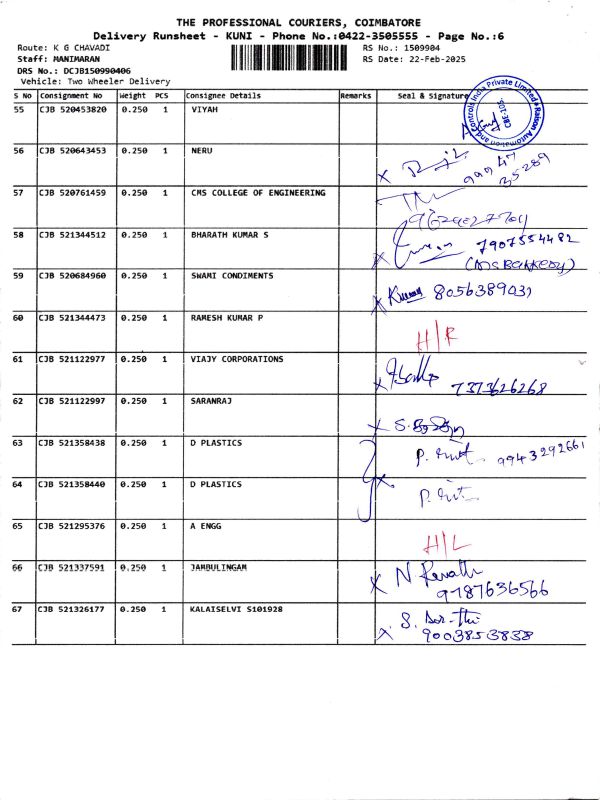 THE PROFESSIONAL COURIERS, COIMBATORE
Delivery Runsheet - KUNI - Phone No.:0422-3505555 - Page No.:6
Route: K G CHAVADI RS No.: 1509904
Staff: MANIMARAN RS Date: 22-Feb-2025
DRS No.: DCJB150990406
Vehicle: Two Wheeler Delivery
S No Consignment No Weight PCS Consignee Details Remarks Seal & Signature
55 CJB 520453820 0.250 1 VIYAH
Raison Automation and Controls India Private Limited
CBE-105.
56 CJB 520643453 0.250 1 NERU
99947
35289
57 CJB 520761459 0.250 1 CMS COLLEGE OF ENGINEERING
58 CJB 521344512 0.250 1 BHARATH KUMAR S
7907554482
59 CJB 520684960 0.250 1 SWAMI CONDIMENTS
Kumar 8056389031
60 CJB 521344473 0.250 1 RAMESH KUMAR P
H/R
61 CJB 521122977 0.250 1 VIAJY CORPORATIONS
7373626268
62 CJB 521122997 0.250 1 SARANRAJ
63 CJB 521358438 0.250 1 D PLASTICS
9943292661
64 CJB 521358440 0.250 1 D PLASTICS
65 CJB 521295376 0.250 1 A ENGG
H/L
66 CJB 521337591 0.250 1 JAMBULINGAM
N Revathi
9787636566
67 CJB 521326177 0.250 1 KALAISELVI S101928
9003853838